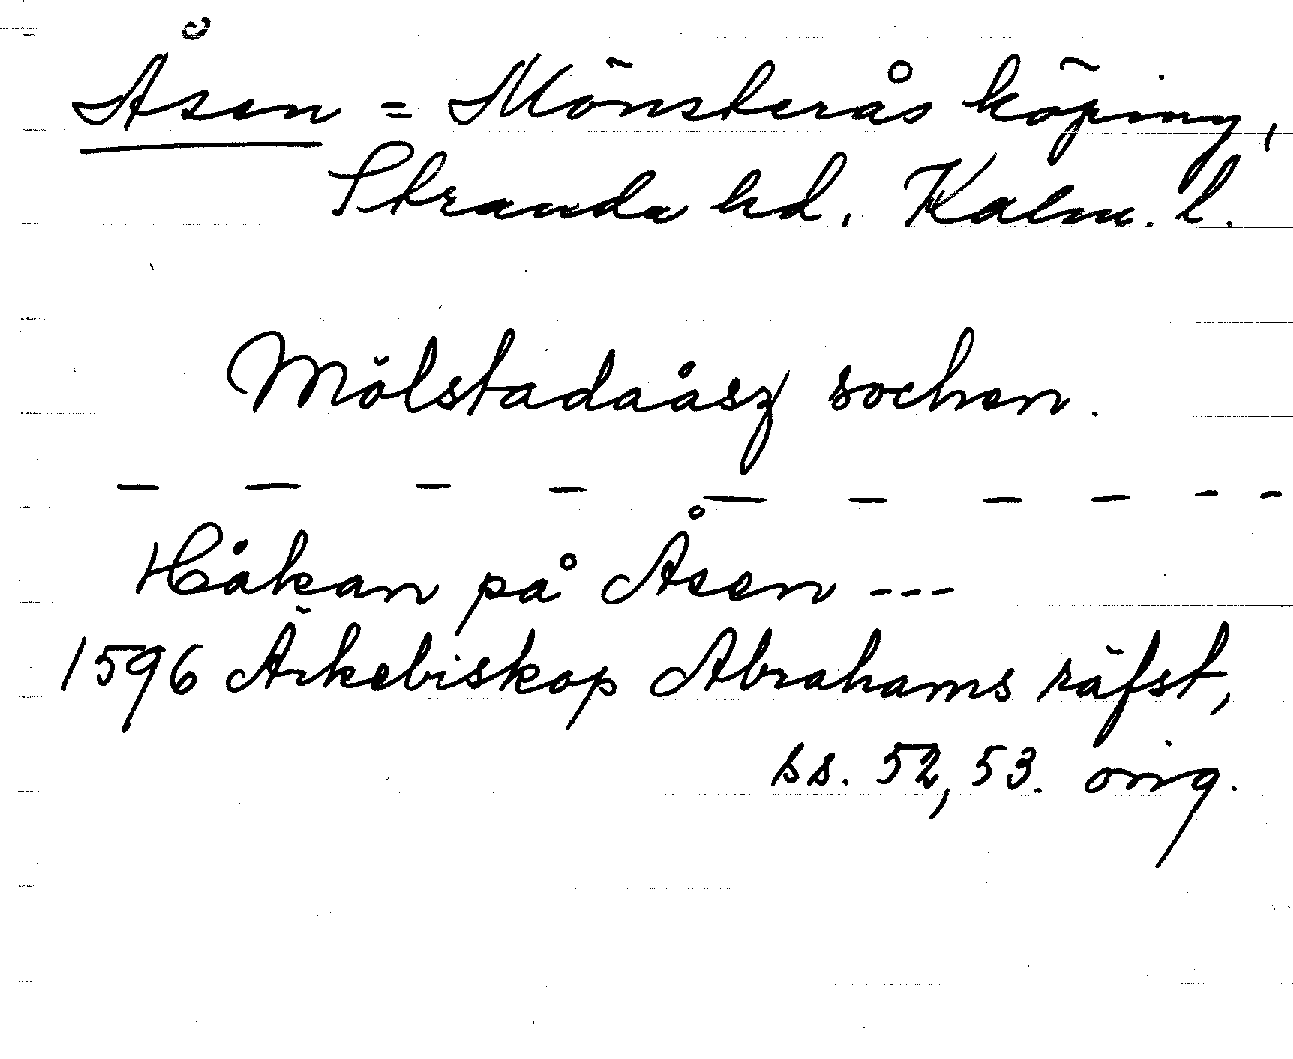 Åsen = Mönsterås köping,
Stranda hd. Kalm. l.
Mölstadaåsz sochen.
– – – – – – – – – –
Håkan på Åsen ---
1596 Ärkebiskop Abrahams räfst,
ss. 52, 53. orig.